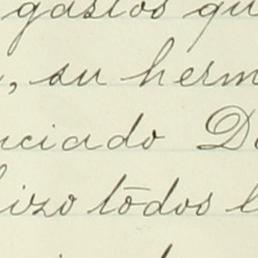 gastos qu
, su herm
nciado D
hizo todos l